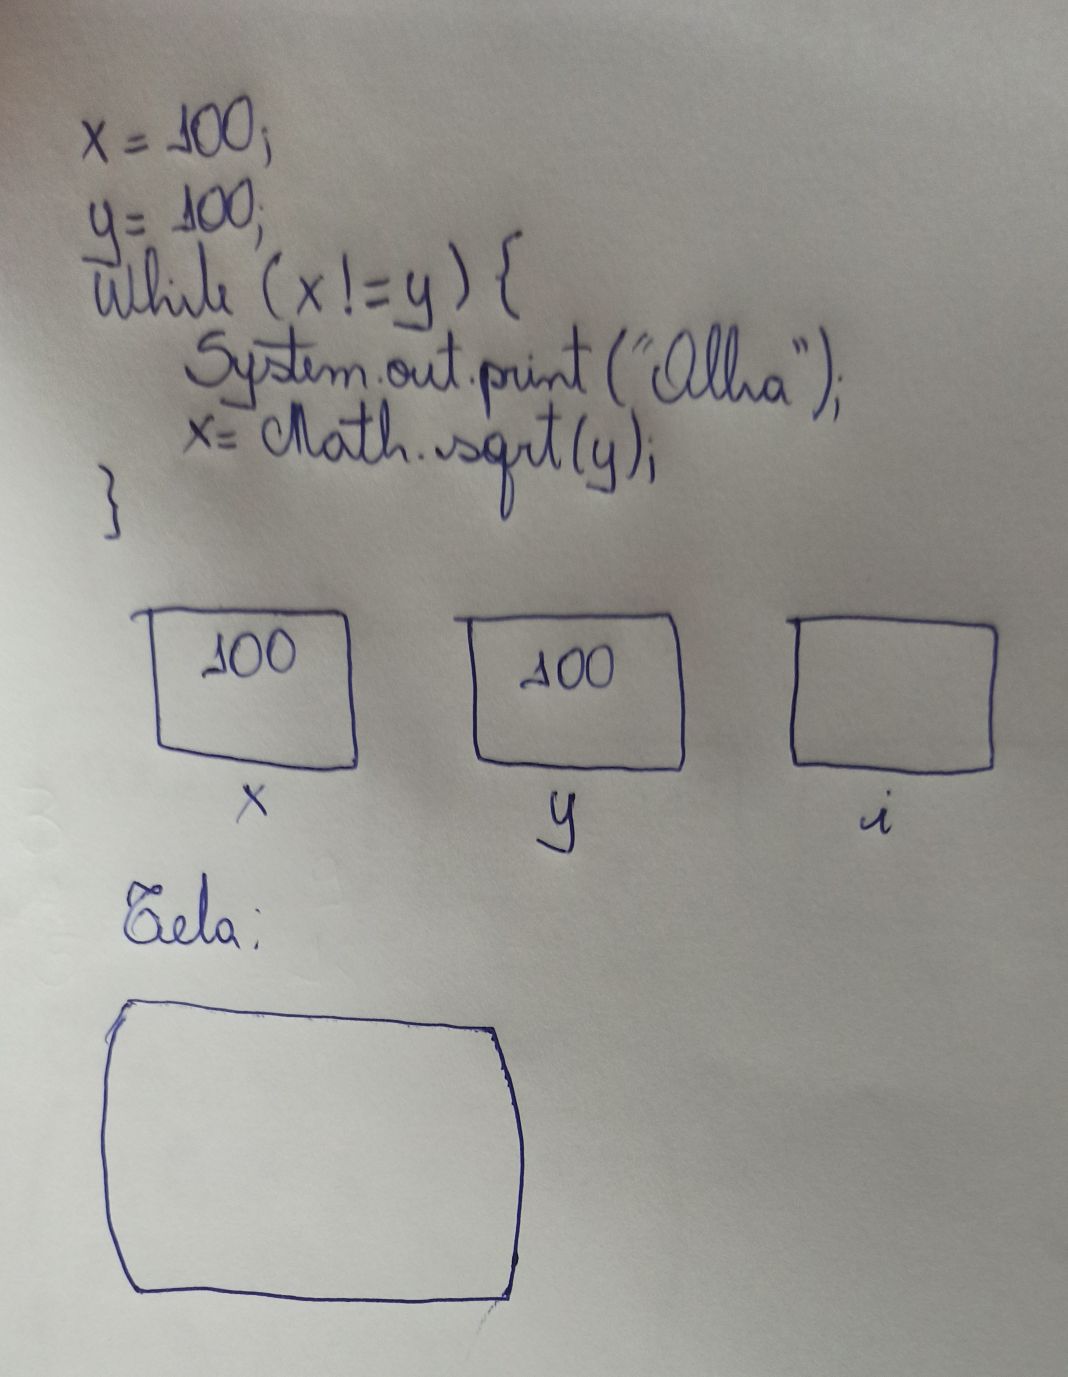 x = 100;
y = 100;
While (x != y) {
System.out.print("Olha");
x = Math.sqrt(y);
}
100 100
x y i
Tela: